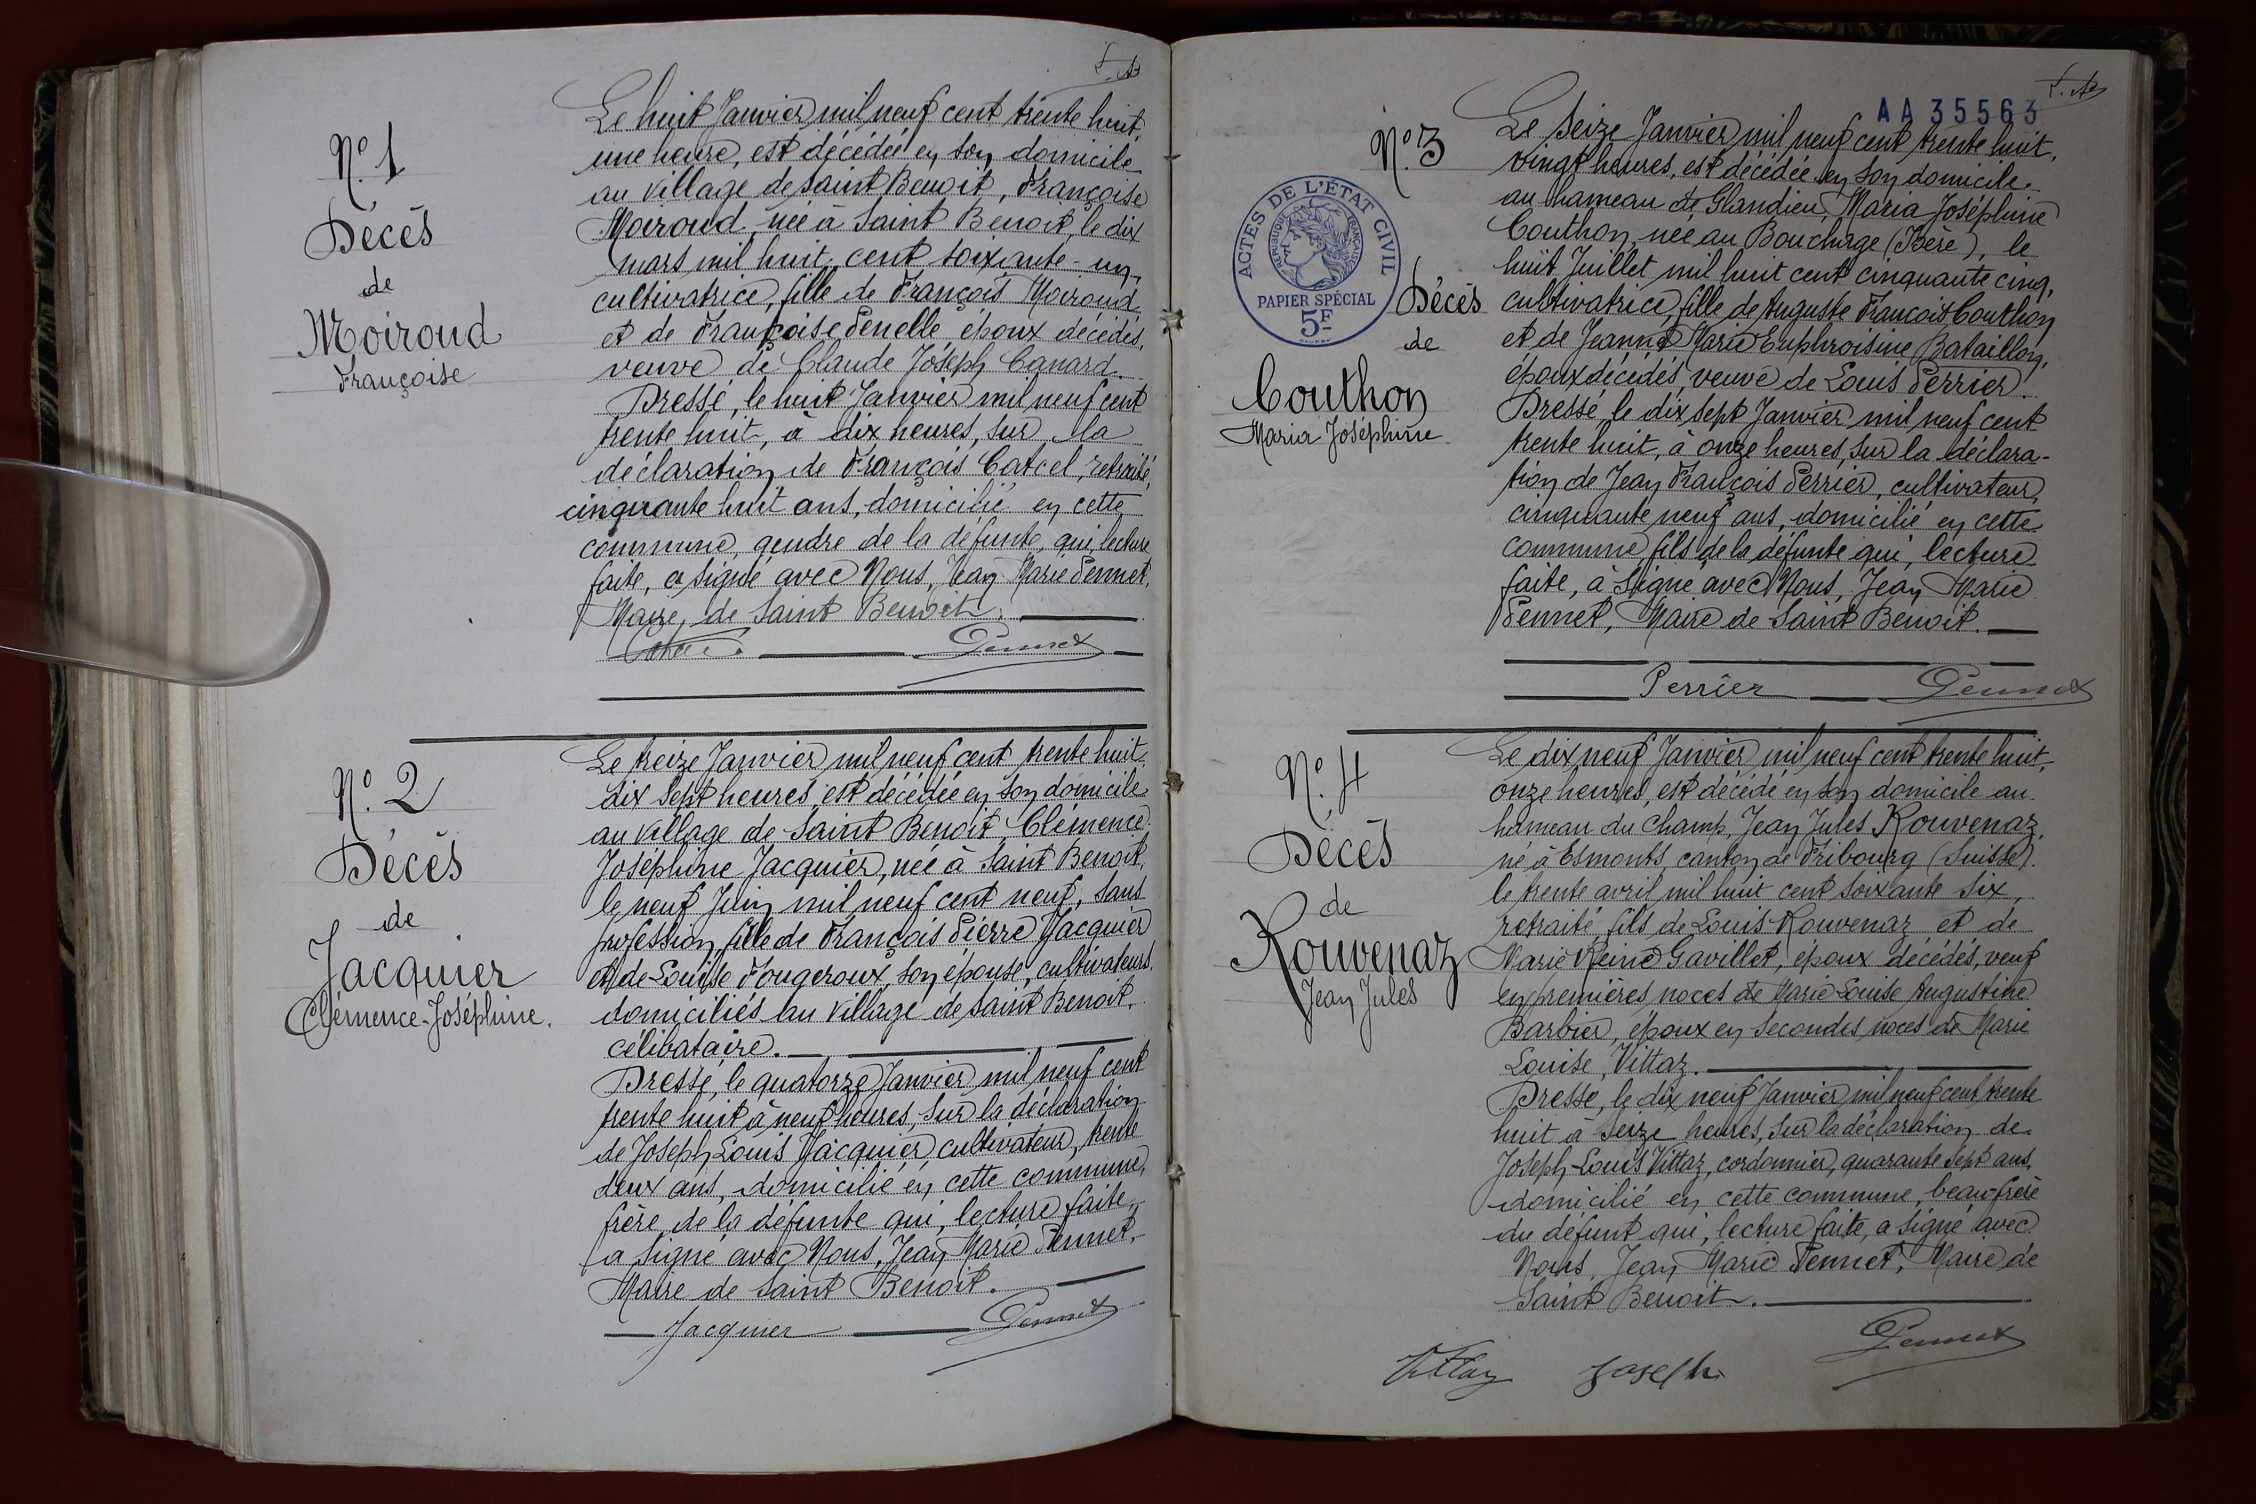 N° 1
Décès
de
Moiroud
Françoise
Le huit Janvier mil neuf cent trente huit,
une heure, est décédée en son domicile
au village de Saint Benoit, Françoise
Moiroud, née à Saint Benoit, le dix
mars mil huit cent soixante-un,
cultivatrice, fille de François Moiroud,
et de Françoise Penelle, époux décédés,
veuve de Claude Joseph Canard.
Dressé, le huit Janvier mil neuf cent
trente huit, à dix heures, sur la
déclaration de François Catcel, retraité,
cinquante huit ans, domicilié en cette
commune, gendre de la défunte, qui, lecture
faite, a signé avec Nous, Jean Marie Pennet,
Maire, de Saint Benoit.
Pennet
N° 2
Décès
de
Jacquier
Clémence-Joséphine.
Le treize Janvier mil neuf cent trente huit,
dix sept heures, est décédée en son domicile
au village de Saint Benoit, Clémence
Joséphine Jacquier, née à Saint Benoit,
le neuf Juin mil neuf cent neuf, sans
profession, fille de François Pierre Jacquier
et de Louise Fougeroux, son épouse, cultivateurs,
domiciliés au village de Saint Benoit,
célibataire.
Dressé, le quatorze Janvier mil neuf cent
trente huit à neuf heures, sur la déclaration
de Joseph Louis Jacquier, cultivateur, trente
deux ans, domicilié en cette commune,
frère de la défunte qui, lecture faite,
a signé avec Nous, Jean Marie Pennet,
Maire de Saint Benoit.
Jacquier Pennet
AA 35563
N° 3
ACTES DE L'ÉTAT CIVIL
RÉPUBLIQUE FRANÇAISE
PAPIER SPÉCIAL
5F
Décès
de
Couthon
Maria Joséphine
Le Seize Janvier mil neuf cent trente huit,
vingt heures, est décédée en son domicile
au hameau de Glandieu, Maria Joséphine
Couthon, née au Bouchage (Isère), le
huit Juillet mil huit cent cinquante cinq,
cultivatrice, fille de Auguste François Couthon
et de Jeanne Marie Euphroisine Bataillon,
époux décédés, veuve de Louis Perrier.
Dressé le dix sept Janvier mil neuf cent
trente huit, à onze heures, sur la déclara-
tion de Jean François Perrier, cultivateur,
cinquante neuf ans, domicilié en cette
commune, fils de la défunte qui, lecture
faite, à signé avec Nous, Jean Marie
Pennet, Maire de Saint Benoit.
Perrier Pennet
N° 4
Décès
de
Rouvenaz
Jean Jules
Le dix neuf Janvier mil neuf cent trente huit,
onze heures, est décédé en son domicile au
hameau du Champ, Jean Jules Rouvenaz,
né à Esmonts, canton de Fribourg (Suisse),
le trente avril mil huit cent soixante six,
retraité, fils de Louis Rouvenaz et de
Marie Reine Gavillet, époux décédés, veuf
en premières noces de Marie Louise Augustine
Barbier, époux en secondes noces de Marie
Louise, Vittaz.
Dressé, le dix neuf Janvier mil neuf cent trente
huit à seize heures, sur la déclaration de
Joseph-Louis Vittaz, cordonnier, quarante sept ans,
domicilié en cette commune, beau-frère
du défunt qui, lecture faite, a signé avec
Nous, Jean Marie Pennet, Maire de
Saint Benoit.
Pennet
Vittaz Joseph